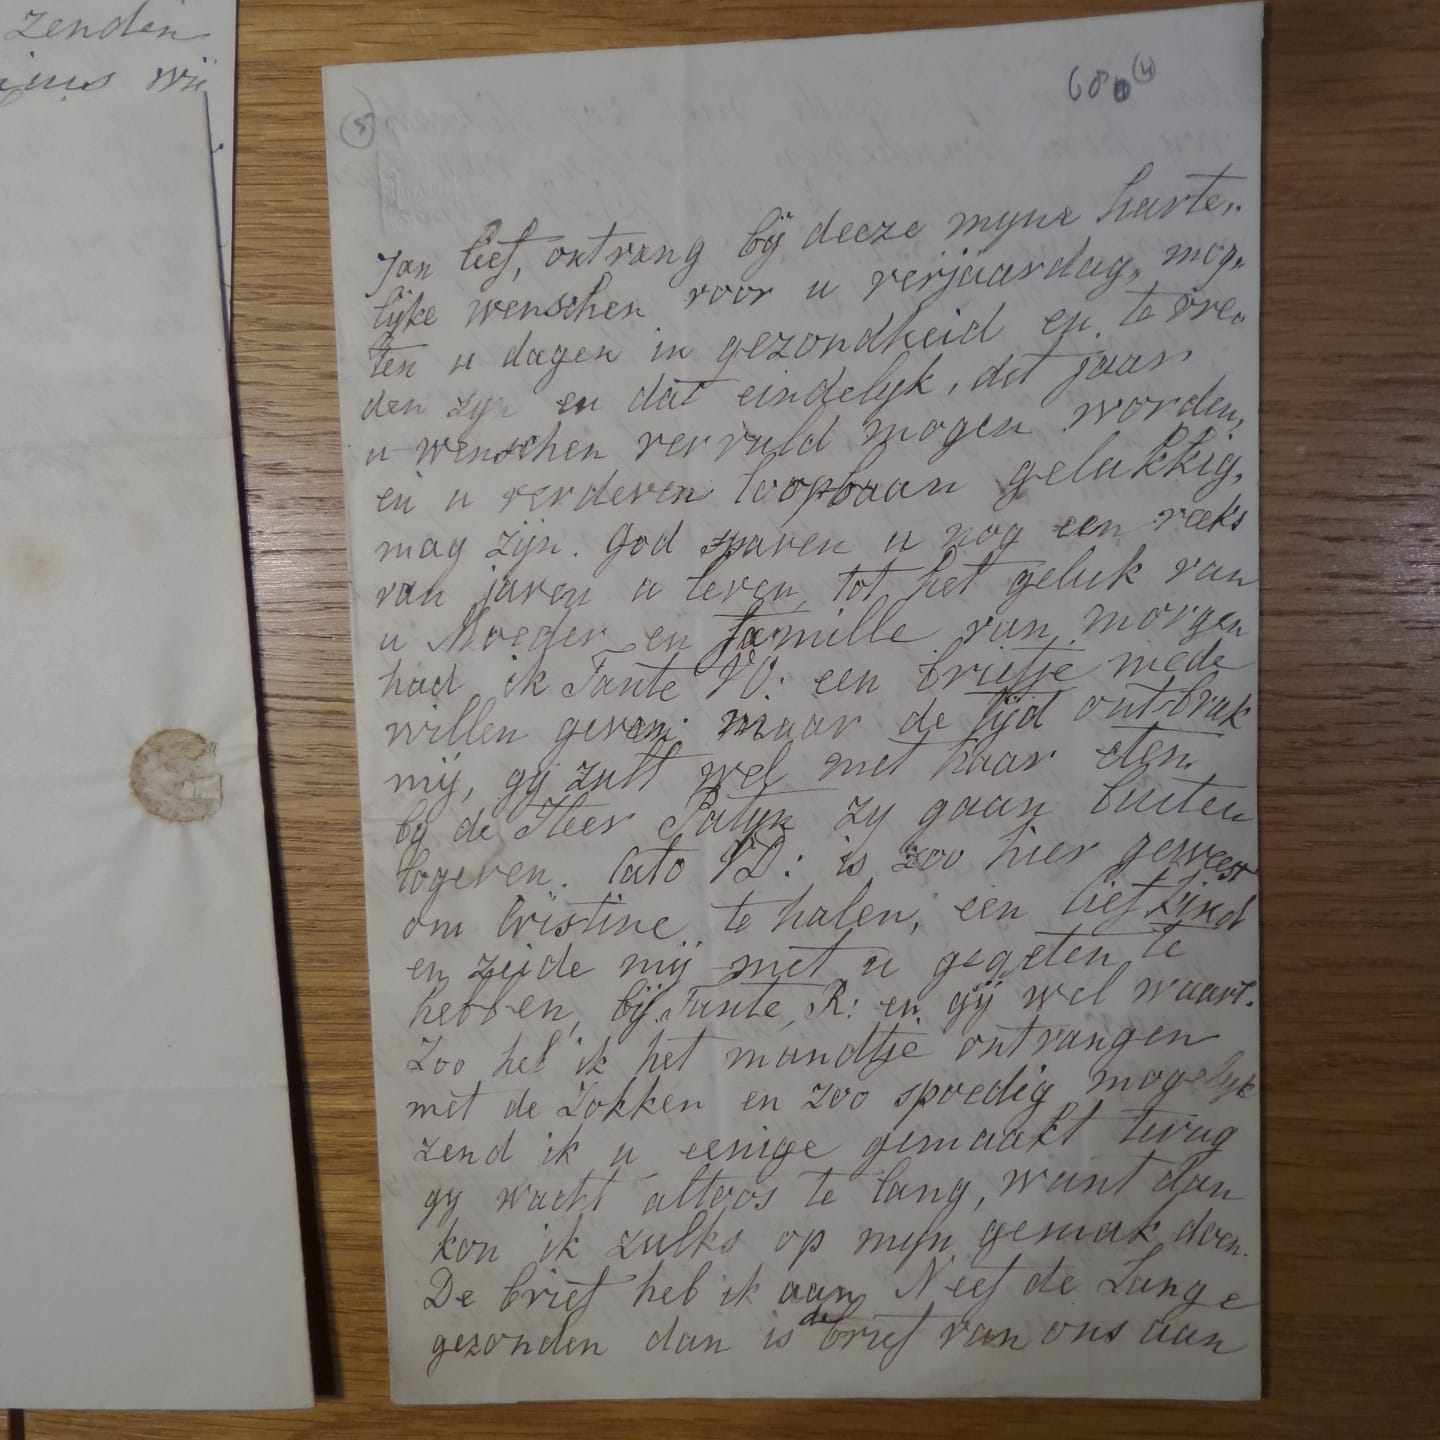 zenden
wij
(5)
68 (4)
Jan lief, ontvang bij deeze myne harte,,
lijke wenschen voor u verjaardag, mog,,
ten u dagen in gezondheid en te vree
den zyn en dat eindelyk, dit jaar
u wenschen vervuld mogen worden,
en u verderen loopbaan gelukkig,
mag zijn. God sparen u nog een reeks
van jaren u leven, tot het geluk van
u Moeder en famille van morgen
had ik Tante VO: een briefje mede
willen geven; maar de tijd ontbrak
mij, gy zult wel met haar eten
by de Heer Patijn zy gaan buiten
logeren. Cato VD: is zoo hier geweest
om Cristine te halen, een lief kind
en zeide mij met u gegeten te
hebben, bij Tante, R: en gij wel waart.
Zoo heb ik het mandtje ontvangen
met de Zokken en zoo spoedig mogelyk
zend ik u eenige gemaakt terug
gy wacht altoos te lang, want dan
kon ik zulks op myn gemak doen.
De brief heb ik aan Neef de Lange
gezonden dan is de brief van ons aan